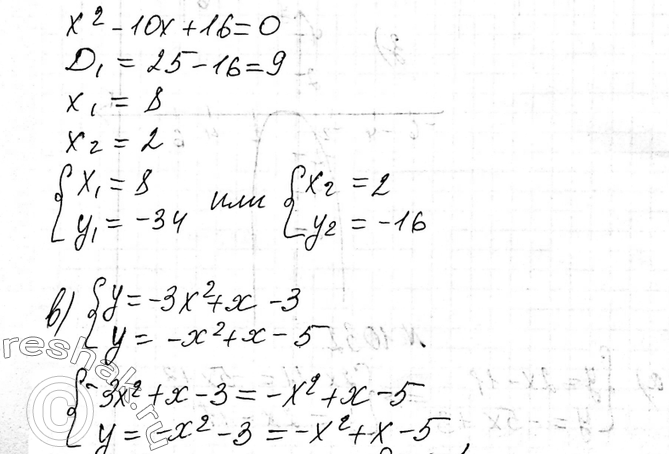 x² - 10x + 16 = 0
D₁ = 25 - 16 = 9
x₁ = 8
x₂ = 2
{ x₁ = 8 или { x₂ = 2
{ y₁ = -34 { y₂ = -16
в) { y = -3x² + x - 3
{ y = -x² + x - 5
{ -3x² + x - 3 = -x² + x - 5
{ y = -x² - 3 = -x² + x - 5
reshak.ru